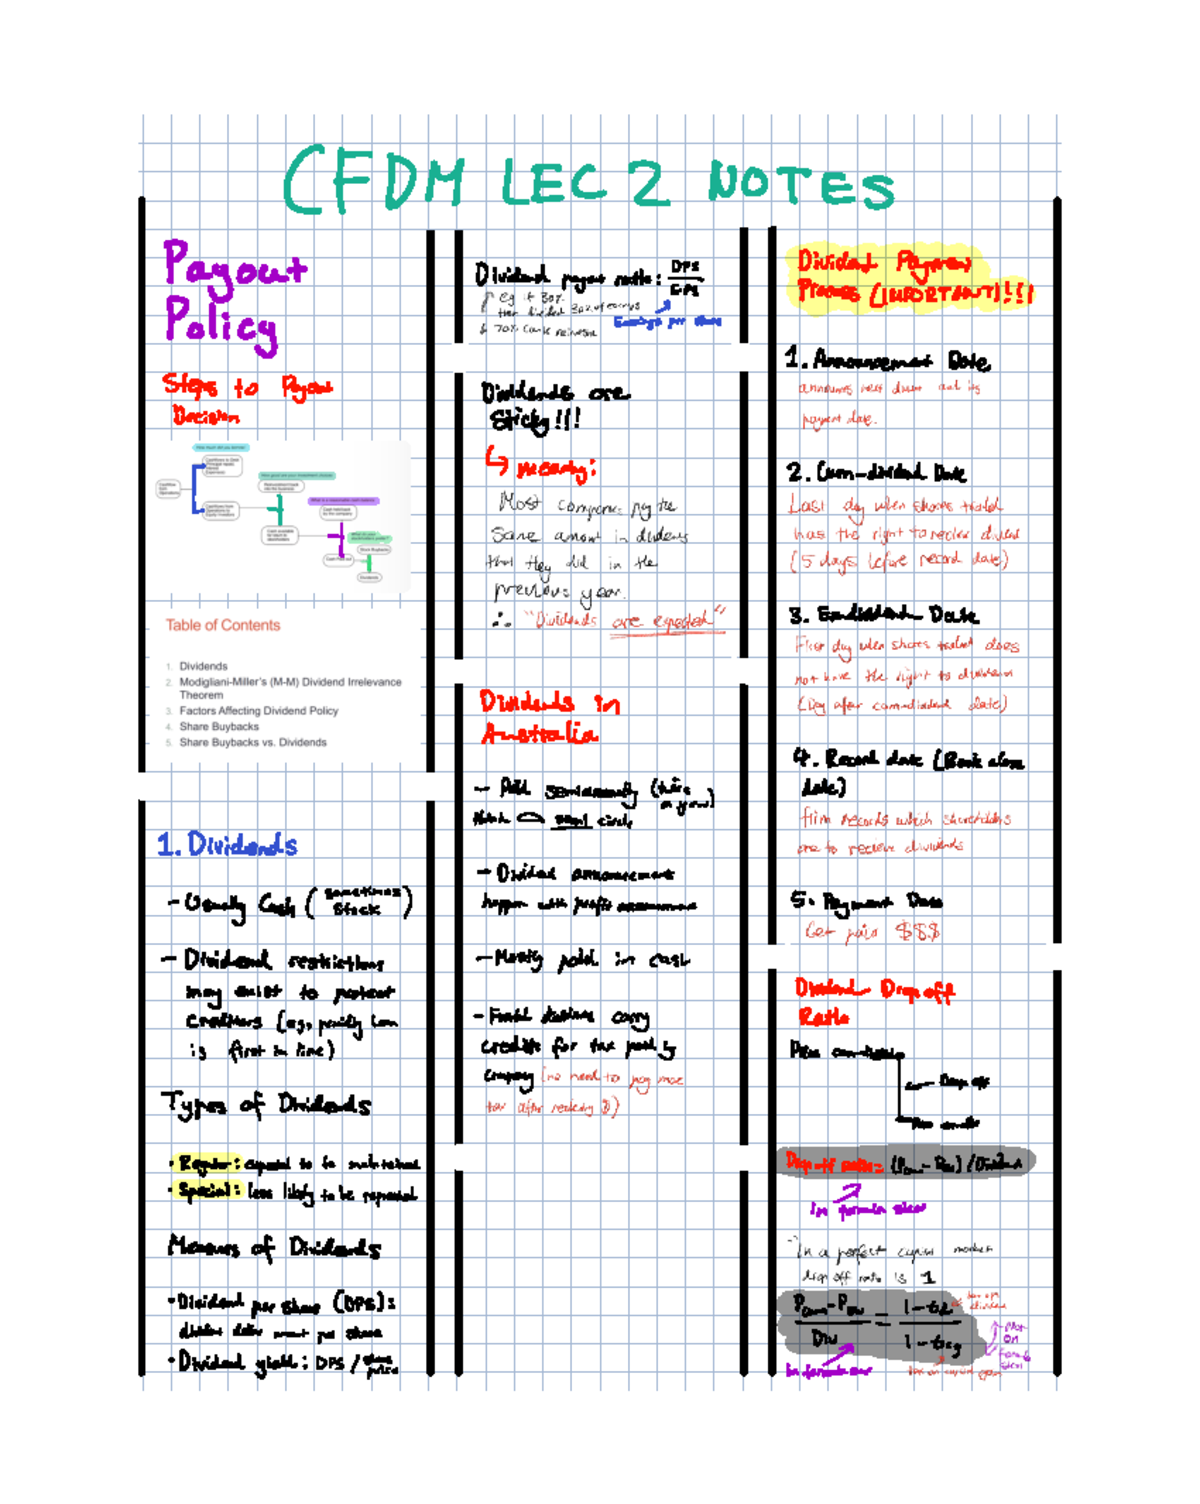 CFDM LEC 2 NOTES
Payout
Policy
Steps to Payout
Decision
Table of Contents
1. Dividends
2. Modigliani-Miller's (M-M) Dividend Irrelevance
Theorem
3. Factors Affecting Dividend Policy
4. Share Buybacks
5. Share Buybacks vs. Dividends
1. Dividends
- Usually Cash (sometimes
stock)
- Dividend restrictions
may exist to protect
creditors (eg,
is first in line)
Types of Dividends
• Regular: expected to be maintained
• Special: less likely to be repeated
Measures of Dividends
• Dividend per share (DPS):
per share
• Dividend yield: DPS / share
price
Dividend payout ratio: DPS
EPS
eg if 30%
Earnings per share
Dividends are
Sticky!!!
↳ meaning:
Most companies pay the
same amount in dividends
that they did in the
previous year.
∴ "Dividends are expected"
Dividends in
Australia
- Paid semiannually (twice
a year)
think semi circle
- Dividend announcement
happen with profit announcement
- Mostly paid in cash
- carry
credits for tax paid by
company (no need to pay more
tax after receiving $)
Dividend Payment
Process (IMPORTANT)!!!
1. Announcement Date
announces and its
payment date.
2. Cum-dividend Date
Last day when shares traded
has the right to receive dividend
(5 days before record date)
3. Exdividend Date
First day when shares traded does
not have the right to dividend
(Day after cum-dividend date)
4. Record date (Book close
date)
firm records which shareholders
are to receive dividends
5. Payment Date
Get paid $$$
Dividend Drop off
Ratio
Drop off
Drop off ratio = (Pcum - Pex) / Dividend
in formula sheet
In a perfect capital market
drop off ratio is 1
Pcum - Pex = 1 - td
Div 1 - tcg
tax on dividend
Not
on
formula
sheet
tax on capital gains